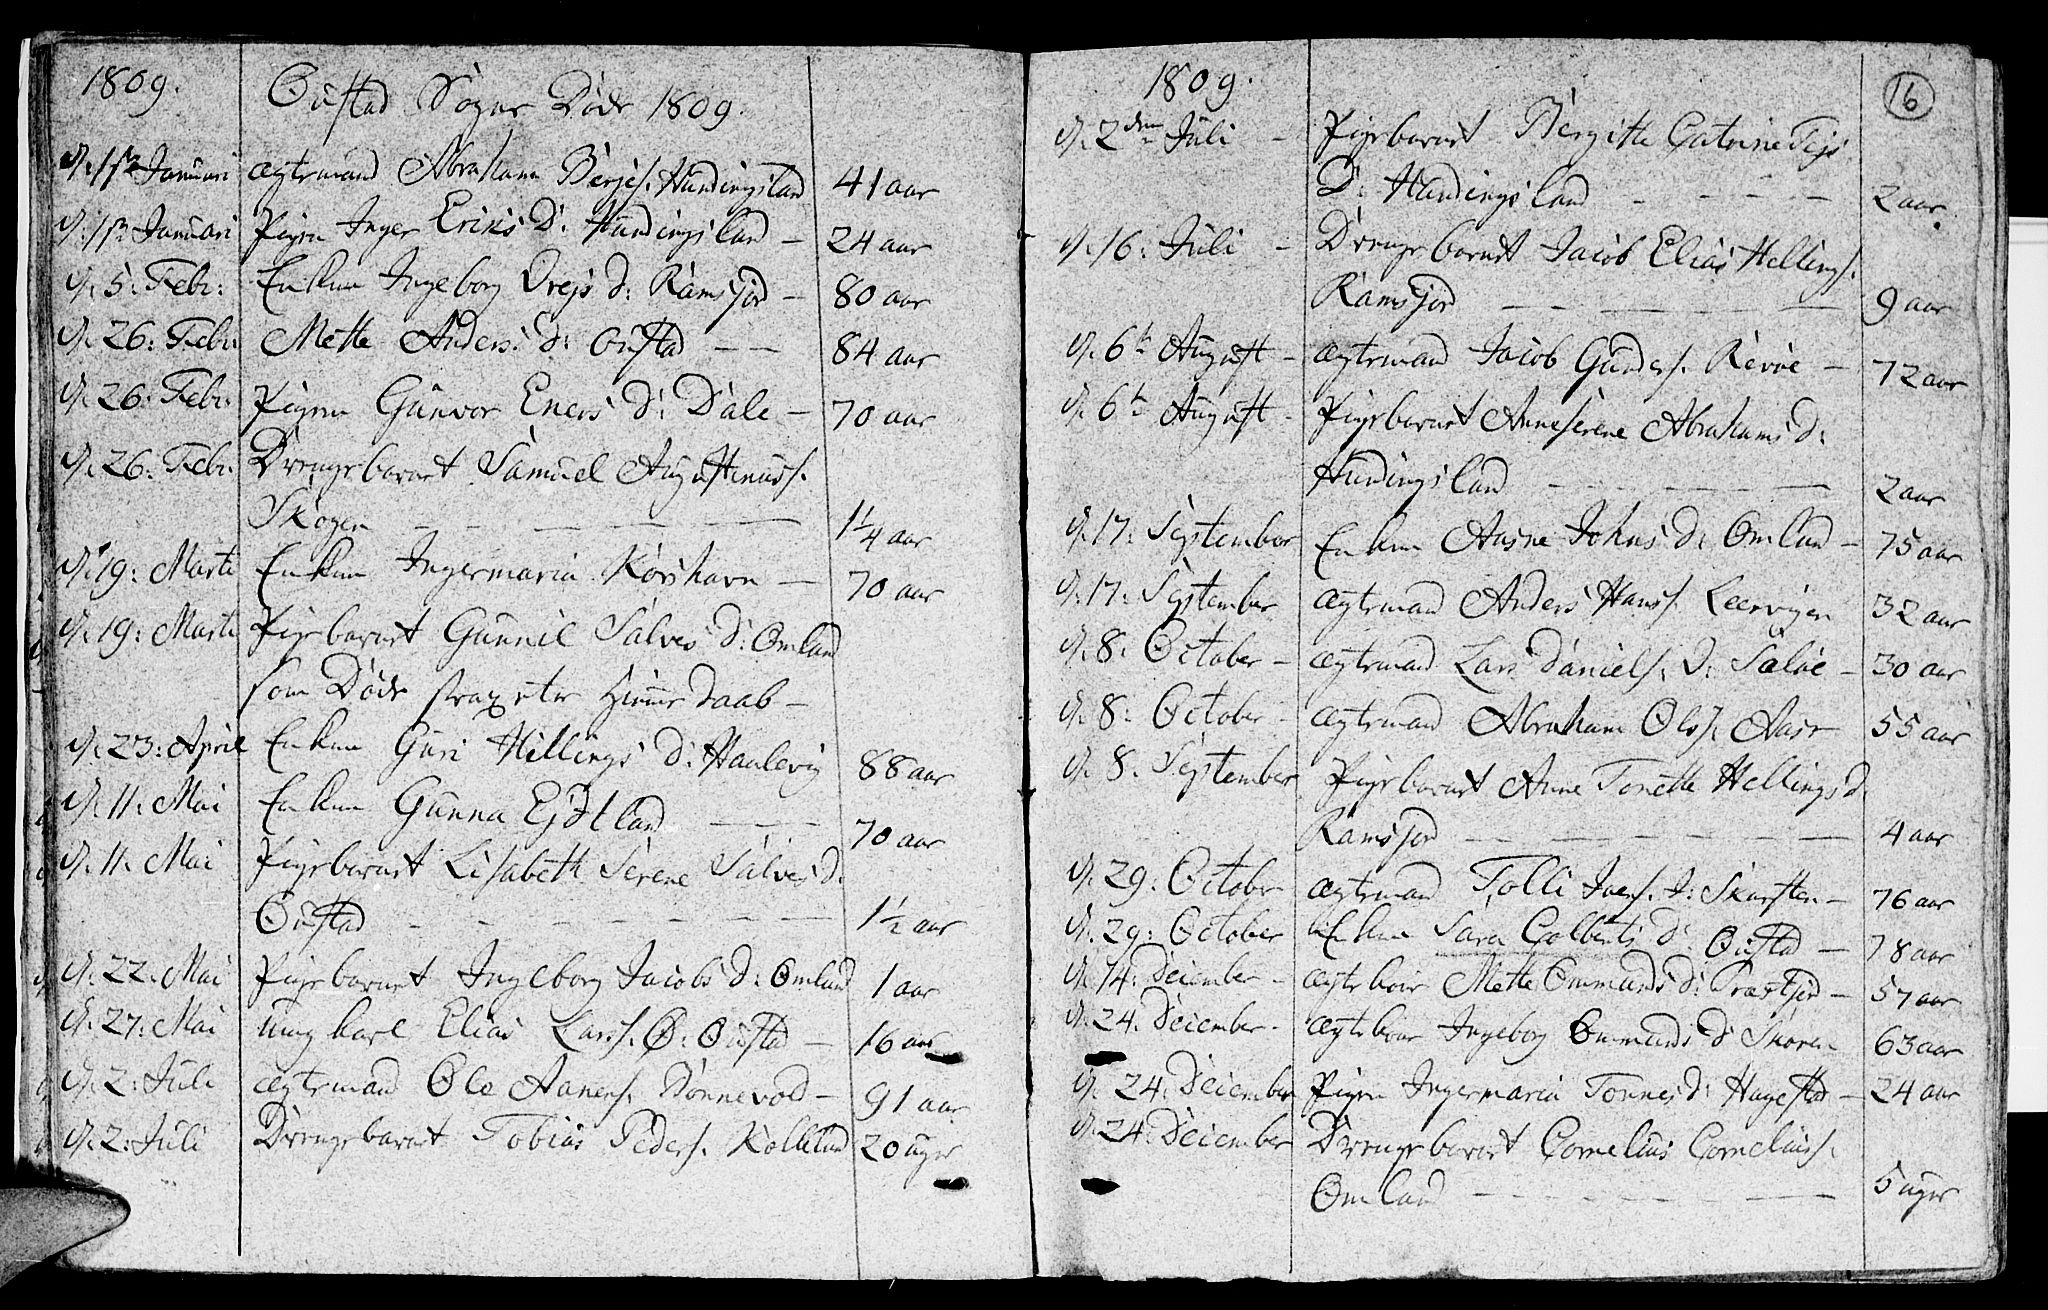 1809.
Oustad Sogns Døde 1809.
d. 1ste Januari ægtemand Abraham Børjes. Hundingsland 41 aar
d. 1ste Januari Pigen Inger Eriks D: Hundingsland – 24 aar
d. 5: Febr: Enken Ingeborg Drejs d: Ramsjord – 80 aar
d. 26: Febr: Mette Anders d: Oustad – – 84 aar
d. 26: Febr: Pigen Gunvor Eners d: Dale – 70 aar
d. 26: Febr: Drengebarnet Samuel Augustinuss.
Skogen – – – – – 1 1/4 aar
d. 19: Marti Enken Ingermaria Korshavn – 70 aar
d. 19: Marti Pigebarnet Gunnil Salves d: Omland
som Døde strax eter Hiemmedaab –
d. 23: April Enken Guri Hillings d: Haulevig 88 aar
d. 11. Mai Enken Gunna Ejdtland – – – 70 aar
d. 11. Mai Pigebarnet Lisabeth Serene Salves d.
Oustad – – – – – – – 1 1/2 aar
d. 22. Mai Pigebarnet Ingeborg Jacobs d: Omland 1 aar
d. 27: Mai ung karl Elias Larss. O: Oustad – 16 aar
d. 2: Juli ægtemand Ole Aaners. Dønnevold – 91 aar
d. 2: Juli Drengebarnet Tobias Peders. Kollelund 20 uger
1809.
16
d. 2den Juli – Pigebarnet Bergitte Catrine Tejs
D: Hundingsland – – – – – 2 aar
d. 16: Juli – Drengebarnet Jacob Elias Hellings.
Ramsjord – – – – – 9 aar
d. 6te August – ægtemand Jacob Gunders. Revøe – 72 aar
d. 6te August – Pigebarnet Anneserene Abrahams d:
Hundingsland – – – – – – 2 aar
d. 17: September Enken Aasne Johns d: Omland – 75 aar
d. 17: September ægtemand Anders Hanss. Leervigen 32 aar
d. 8: October – ægtemand Lars Daniels. I: Saløe – 30 aar
d. 8: October – ægtemand Abraham Olss. Aase 55 aar
d. 8. September Pigebarnet Anne Tonette Hellings d
Ramsjord – – – – – – 4 aar
d. 29: October ægtemand Tolli Ivers. I: Skarsten – 76 aar
d. 29: October Enken Sara Golberts d: Oustad – 78 aar
d. 14: Deiember – ægtekoir Mette Ommunds d: Præstjord – 57 aar
d. 24. Deiember – ægtekoir Ingeborg Ommunds d Skoren 63 aar
d. 24: Deiember Pigen Ingermaria Tonnes d: Hagestad – 24 aar
d. 24: Deiember Drengebarnet Cornelius Corneliuss.
Omland – – – – – – 5 uger